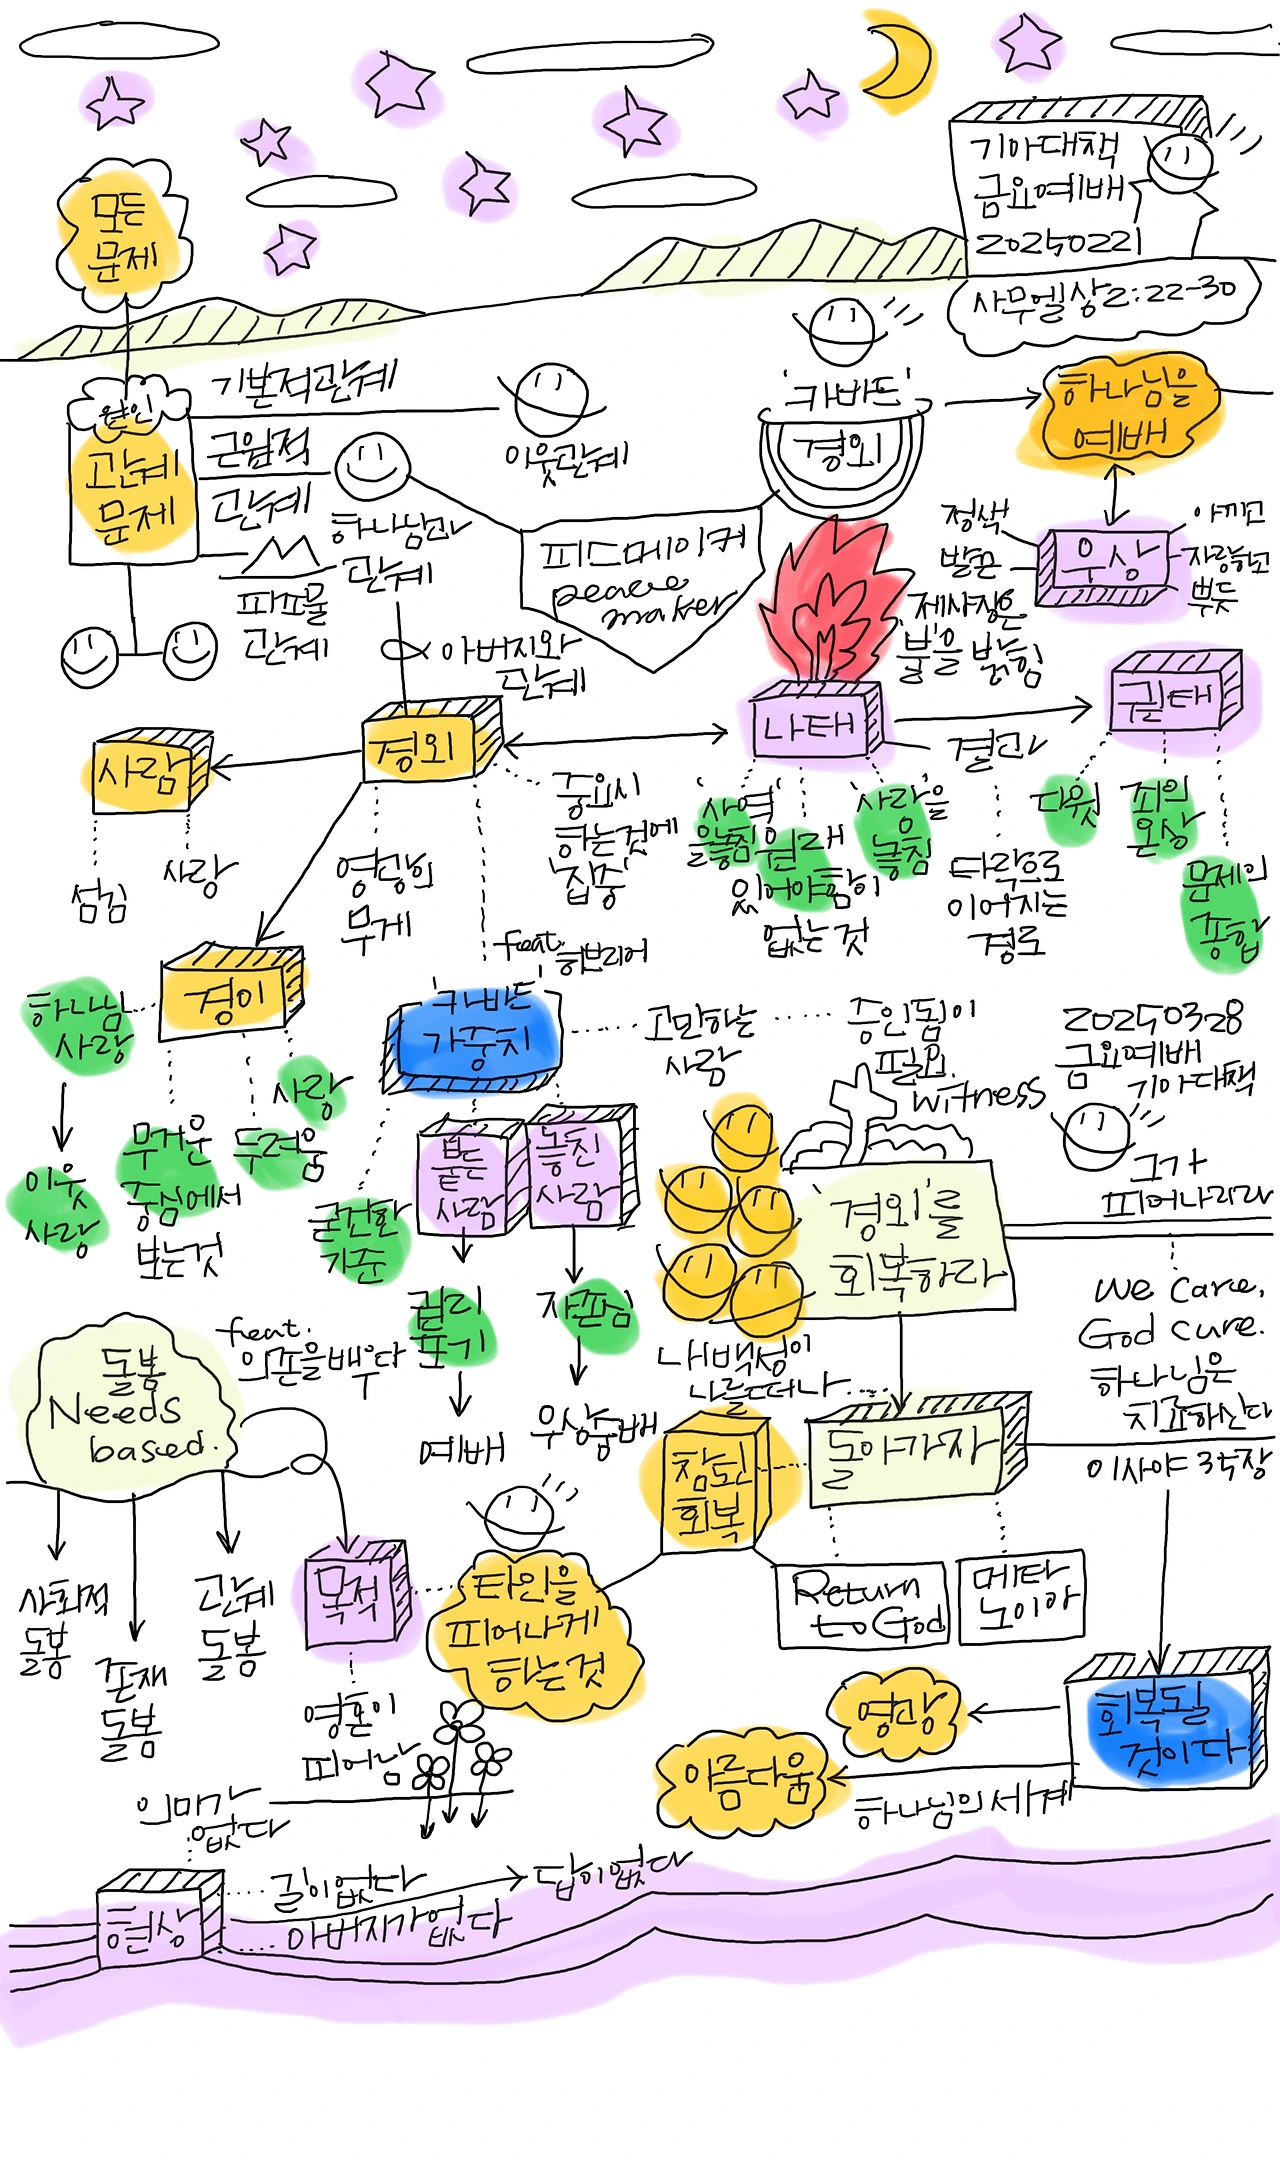 기아대책
금요예배
20250221
사무엘상2:22-30
모든
문제
원인
관계
문제
기본적관계
이웃관계
근원적
관계
하나님과
관계
피조물
관계
아버지와
관계
피스메이커
peace
maker
'카바드'
경외
하나님을
예배
우상
정색
발끈
아끼고
자랑하고
뿌듯
'제사장은
'불'을 밝힘
나태
결과
타락으로
이어지는
경로
권태
다윗
죄의
온상
문제의
종합
'사역'
을놓침
원래
있어야함이
없는 것
'사랑'을
놓침
경외
중요시
하는것에
'집중'
영광의
무게
사람
섬김
사랑
경이
하나님
사랑
이웃
사랑
무거운
중심에서
보는것
두려움
사랑
feat.
히브리어
'카바드'
가중치
고민하는
사람
증인됨이
필요.
witness
굳건한
기준
붙든
사람
놓친
사람
예배
우상숭배
20250328
금요예배
기아대책
그가
피어나리라
'경외'를
회복하라
내백성이
나를떠나...
we care,
God cure.
하나님은
치료하신다
이사야 35장
돌아가자
참된
회복
Return
to God
메타
노이아
회복될
것이다
영광
아름다움
하나님의세계
돌봄
Needs
based.
feat.
의존을배우다
사회적
돌봄
존재
돌봄
관계
돌봄
목적
영혼이
피어남
타인을
피어나게
하는것
의미가
없다
현상
길이없다
답이없다
아버지가없다